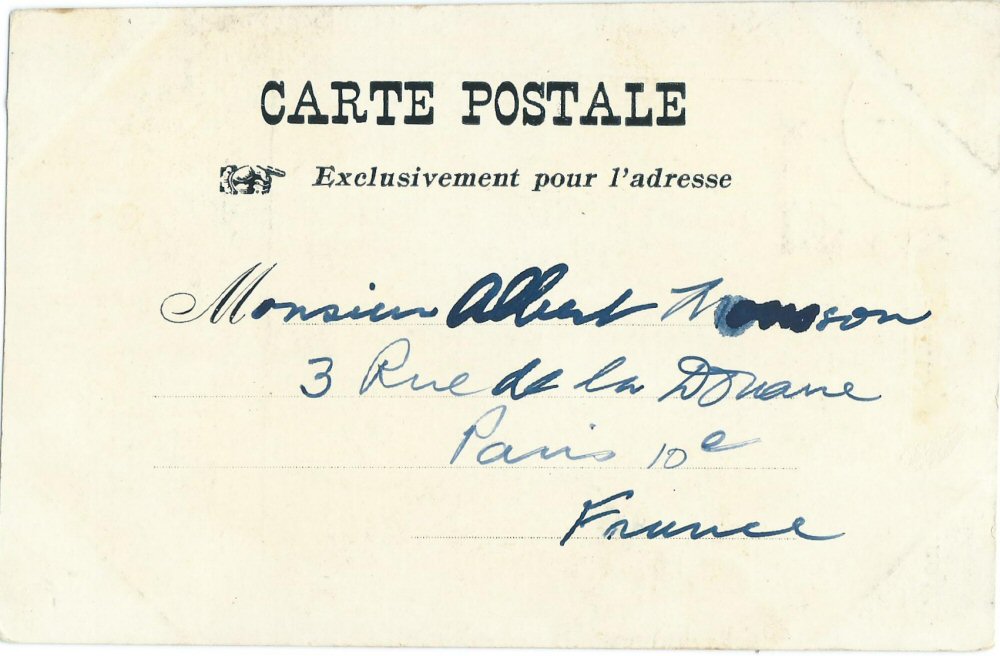 CARTE POSTALE
Exclusivement pour l'adresse
Monsieur Albert
3 Rue de la Douane
Paris 10e
France